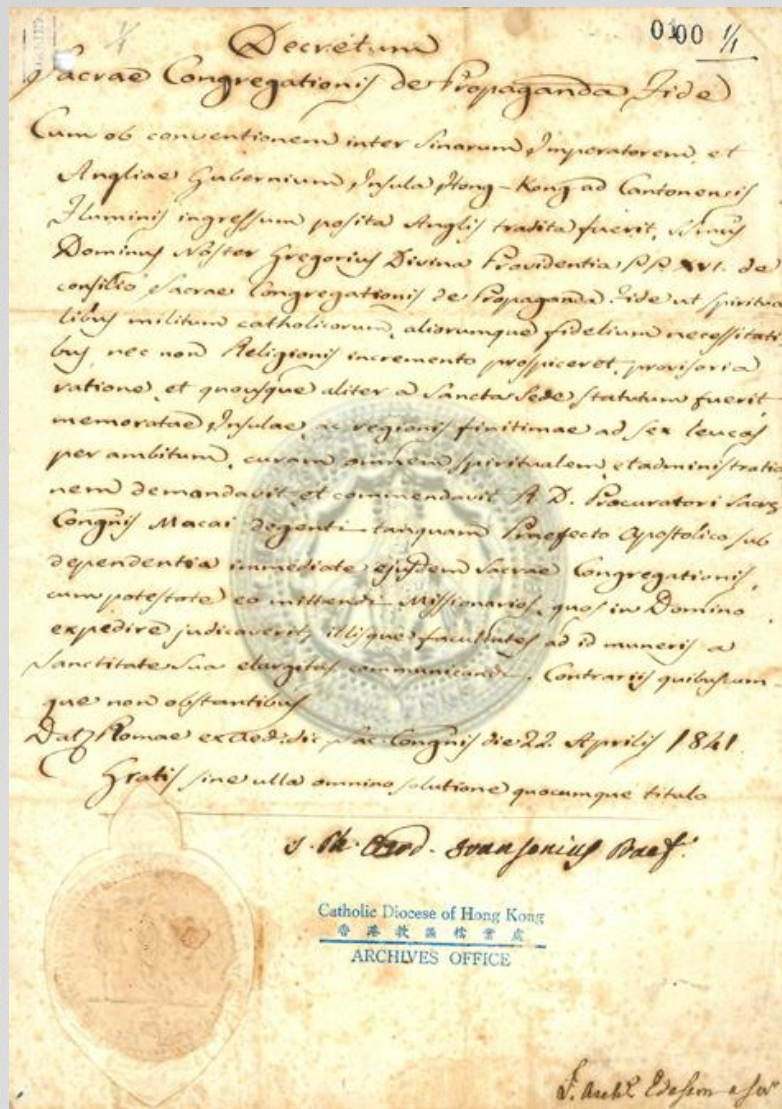 0100 1/1
Decretum
Sacrae Congregationis de Propaganda Fide
Cum ob conventionem inter Sinarum Imperatorem, et
Angliae Gubernium, Insula Hong-Kong ad Cantonensis
Fluminis ingressum posita Anglis tradita fuerit, SSmus
Dominus Noster Gregorius Divina Providentia PP. XVI. de
consilio Sacrae Congregationis de Propaganda Fide ut spiritua
libus militum catholicorum, aliorumque fidelium necessitati
bus, nec non Religionis incremento prospiceret, provisoria
ratione, et quousque aliter a Sancta Sede statutum fuerit
memoratae Insulae, ac regionis finitimae ad sex leucas
per ambitum, curam omnem spiritualem, et administratio
nem demandavit, et commendavit R. D. Procuratori Sacrae
Congnis Macai degenti tanquam Praefecto Apostolico sub
dependentia immediate ejusdem Sacrae Congregationis,
cum potestate eo mittendi Missionarios, quos in Domino
expedire judicaverit, illisque facultates ad id muneris a
Sanctitate Sua elargitas communicandi. Contrariis quibuscum
que non obstantibus
Dat. Romae ex Aed. dic. Sac. Congnis die 22. Aprilis 1841
Gratis sine ulla omnino solutione quocumque titulo
J. Ph. Card. Fransonius Praef.
Catholic Diocese of Hong Kong
香港教區檔案處
ARCHIVES OFFICE